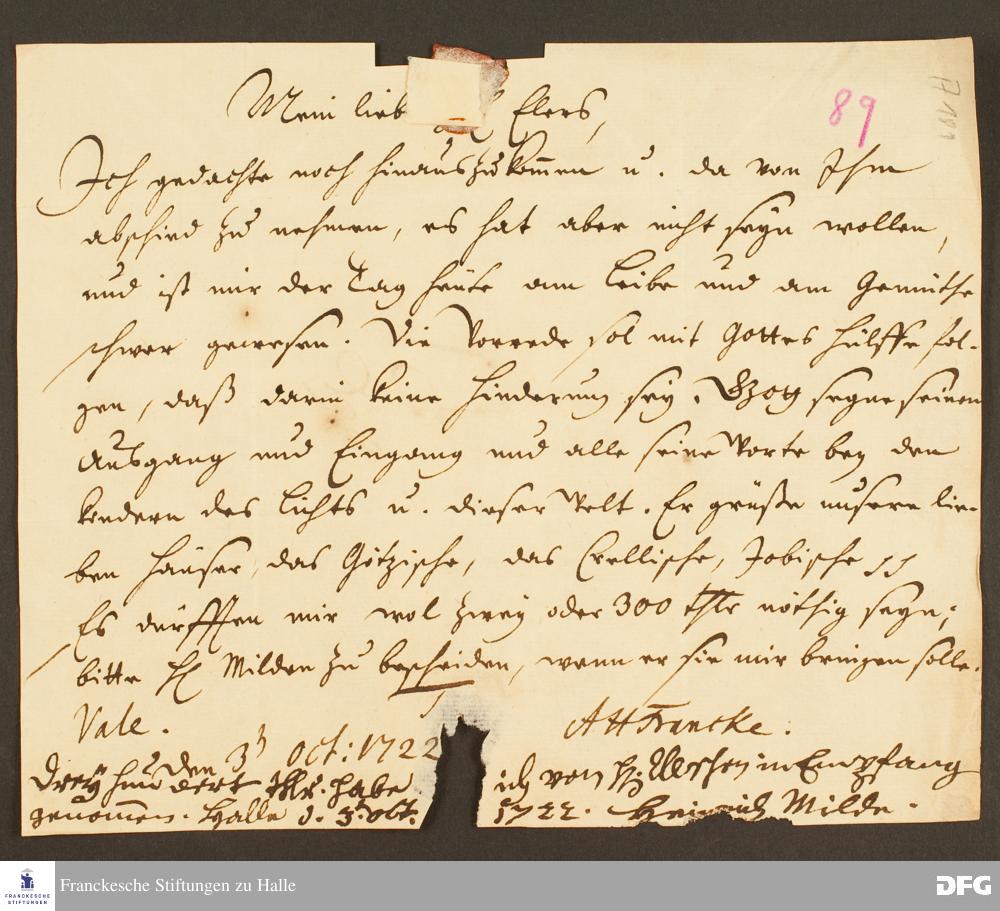 Mein lieb Elers,
89
Ich gedachte noch hinauszukom̅en u. da von Ihm
abschied zu nehmen, es hat aber nicht seyn wollen,
und ist mir der Tag heute am Leibe und am Gemüthe
schwer gewesen. Die Vorrede sol mit Gottes Hülffe fol-
gen, daß darin keine Hinderung sey. Gott segne seinen
Ausgang und Eingang und alle seine Worte bey den
Kindern des Lichts u. dieser Welt. Er grüße unsere lie-
ben Häuser, das Götzische, das Crellische, Jobische
Es dürfften mir wol zwey oder 300 thlr nöthig seyn;
bitte H Milden zu bescheiden, wenn er sie mir bringen solle.
Vale.
AHFrancke.
den 3t Oct: 1722
Drey hundert thlr. habe ich von H. in Empfang
genom̅en. Halle d. 3. Oct. 1722. Heinrich Milde.
Franckesche Stiftungen zu Halle
FRANCKESCHE STIFTUNGEN
DFG